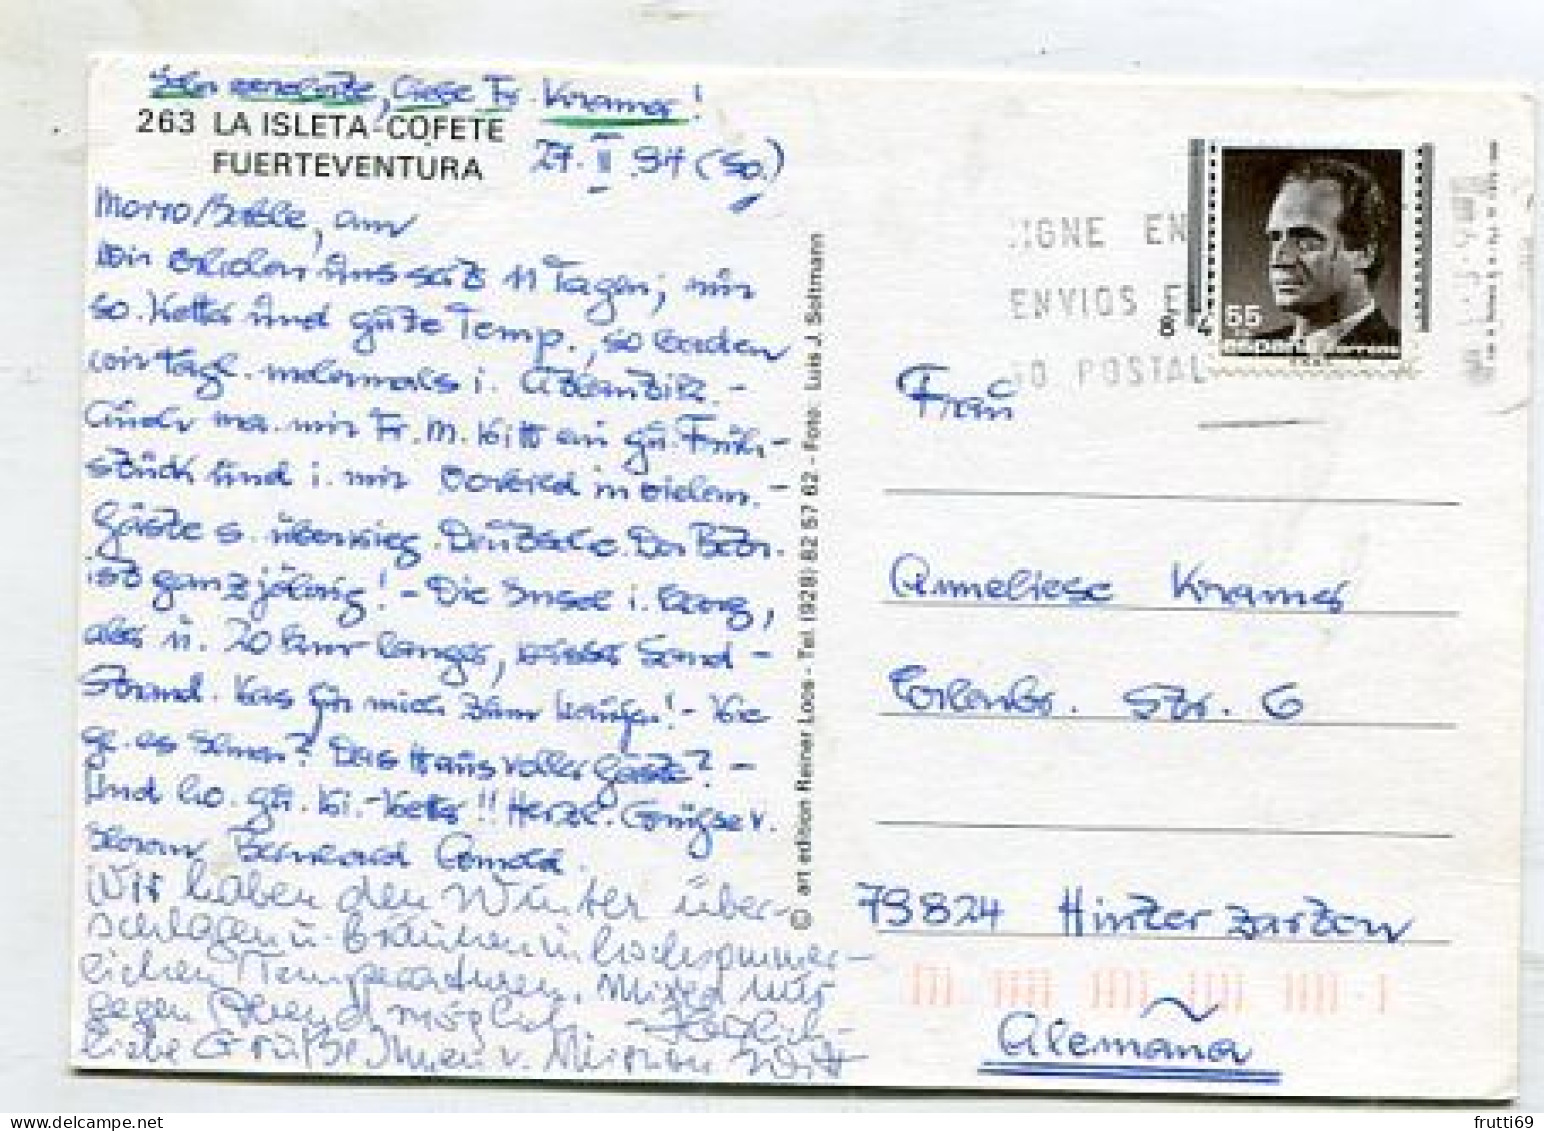 Sehr verehrte, liebe Fr. Kramer!
263 LA ISLETA-COFETE
FUERTEVENTURA
27. II. 94 (So.)
Morro Jable, am
Wir erholen uns seit 11 Tagen; mir
so. Wetter und gute Temp., so baden
wir tägl. mehrmals i. Atlantik. -
Auch ma. mir Fr. M. Witt ein gu. Früh-
stück und i. mir Vorbild in vielem. -
Gäste s. überwieg. Deutsche. Der Betr.
ist ganzjährig! - Die Insel i. karg,
aber ü. 20 km langer, weißer Sand-
strand. Was für mich zum Laufen! - Wie
ge. es Ihnen? Das Haus voller Gäste? -
Und ho. gu. Wi.-Wetter!! Herzl. Grüße v.
Ihrem Bernhard Arnold.
Wir haben den Winter über-
schlagen u. bräunen in hochsommer-
lichen Temperaturen,
gegen Abend möglich. Herzlich-
liebe Grüße Ihnen v. Mirjam Witt
© art edition Reiner Loos - Tel. (928) 82 57 62 - Foto: Luis J. Soltmann
SIGNE EN
ENVIOS E
GO POSTAL
55
Frau
Anneliese Kramer
Erlenbr. Str. 6
79824 Hinterzarten
Alemaña
frutti69